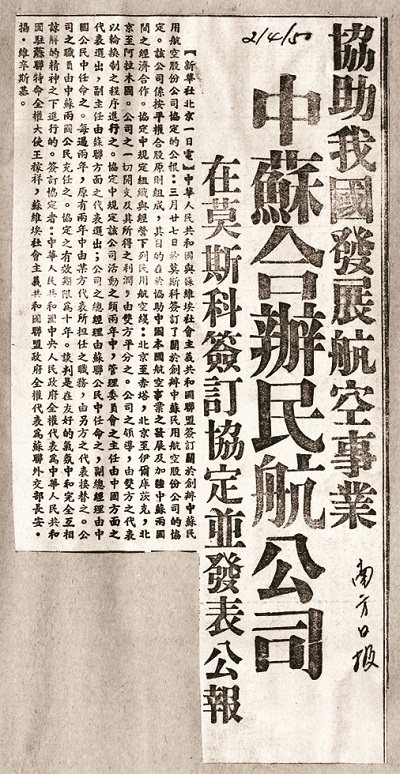 協助我國發展航空事業
中蘇合辦民航公司
在莫斯科簽訂協定並發表公報
南方日报
2/4/50
【新華社北京一日電】中華人民共和國與蘇維埃社會主義共和國聯盟簽訂關於創辦中蘇民
用航空股份公司協定的公報：三月廿七日於莫斯科簽訂了關於創辦中蘇民用航空股份公司的協
定。該公司係按平權合股原則組成，其目的在於協助中國本國航空事業之發展及加強中蘇兩國
間之經濟合作。協定中規定組織與經營下列民用航空綫：北京至赤塔，北京至伊爾庫茨克，北
京至阿拉木圖。公司之一切開支及其所得之利潤，由雙方平分之。公司之領導，由雙方之代表
以輪換制之程序進行之。協定中規定該公司活動之頭兩年中，管理委員會之主任由中國方面之
代表選出，副主任由蘇聯方面之代表選出；公司之總經理由蘇聯公民中任命之，副總經理由中
國公民中任命之。每過兩年，原有兩年中由某方代表所担任之職務，由另方之代表接替之。公
司之職員由中蘇兩國公民充任之。協定之有效期限爲十年。談判是在友好的氣氛中和完全互相
諒解的精神之下進行的。簽訂協定者：中華人民共和國中央人民政府全權代表爲中華人民共和
國駐蘇聯特命全權大使王稼祥，蘇維埃社會主義共和國聯盟政府全權代表爲蘇聯外交部長安·
揚·維辛斯基。